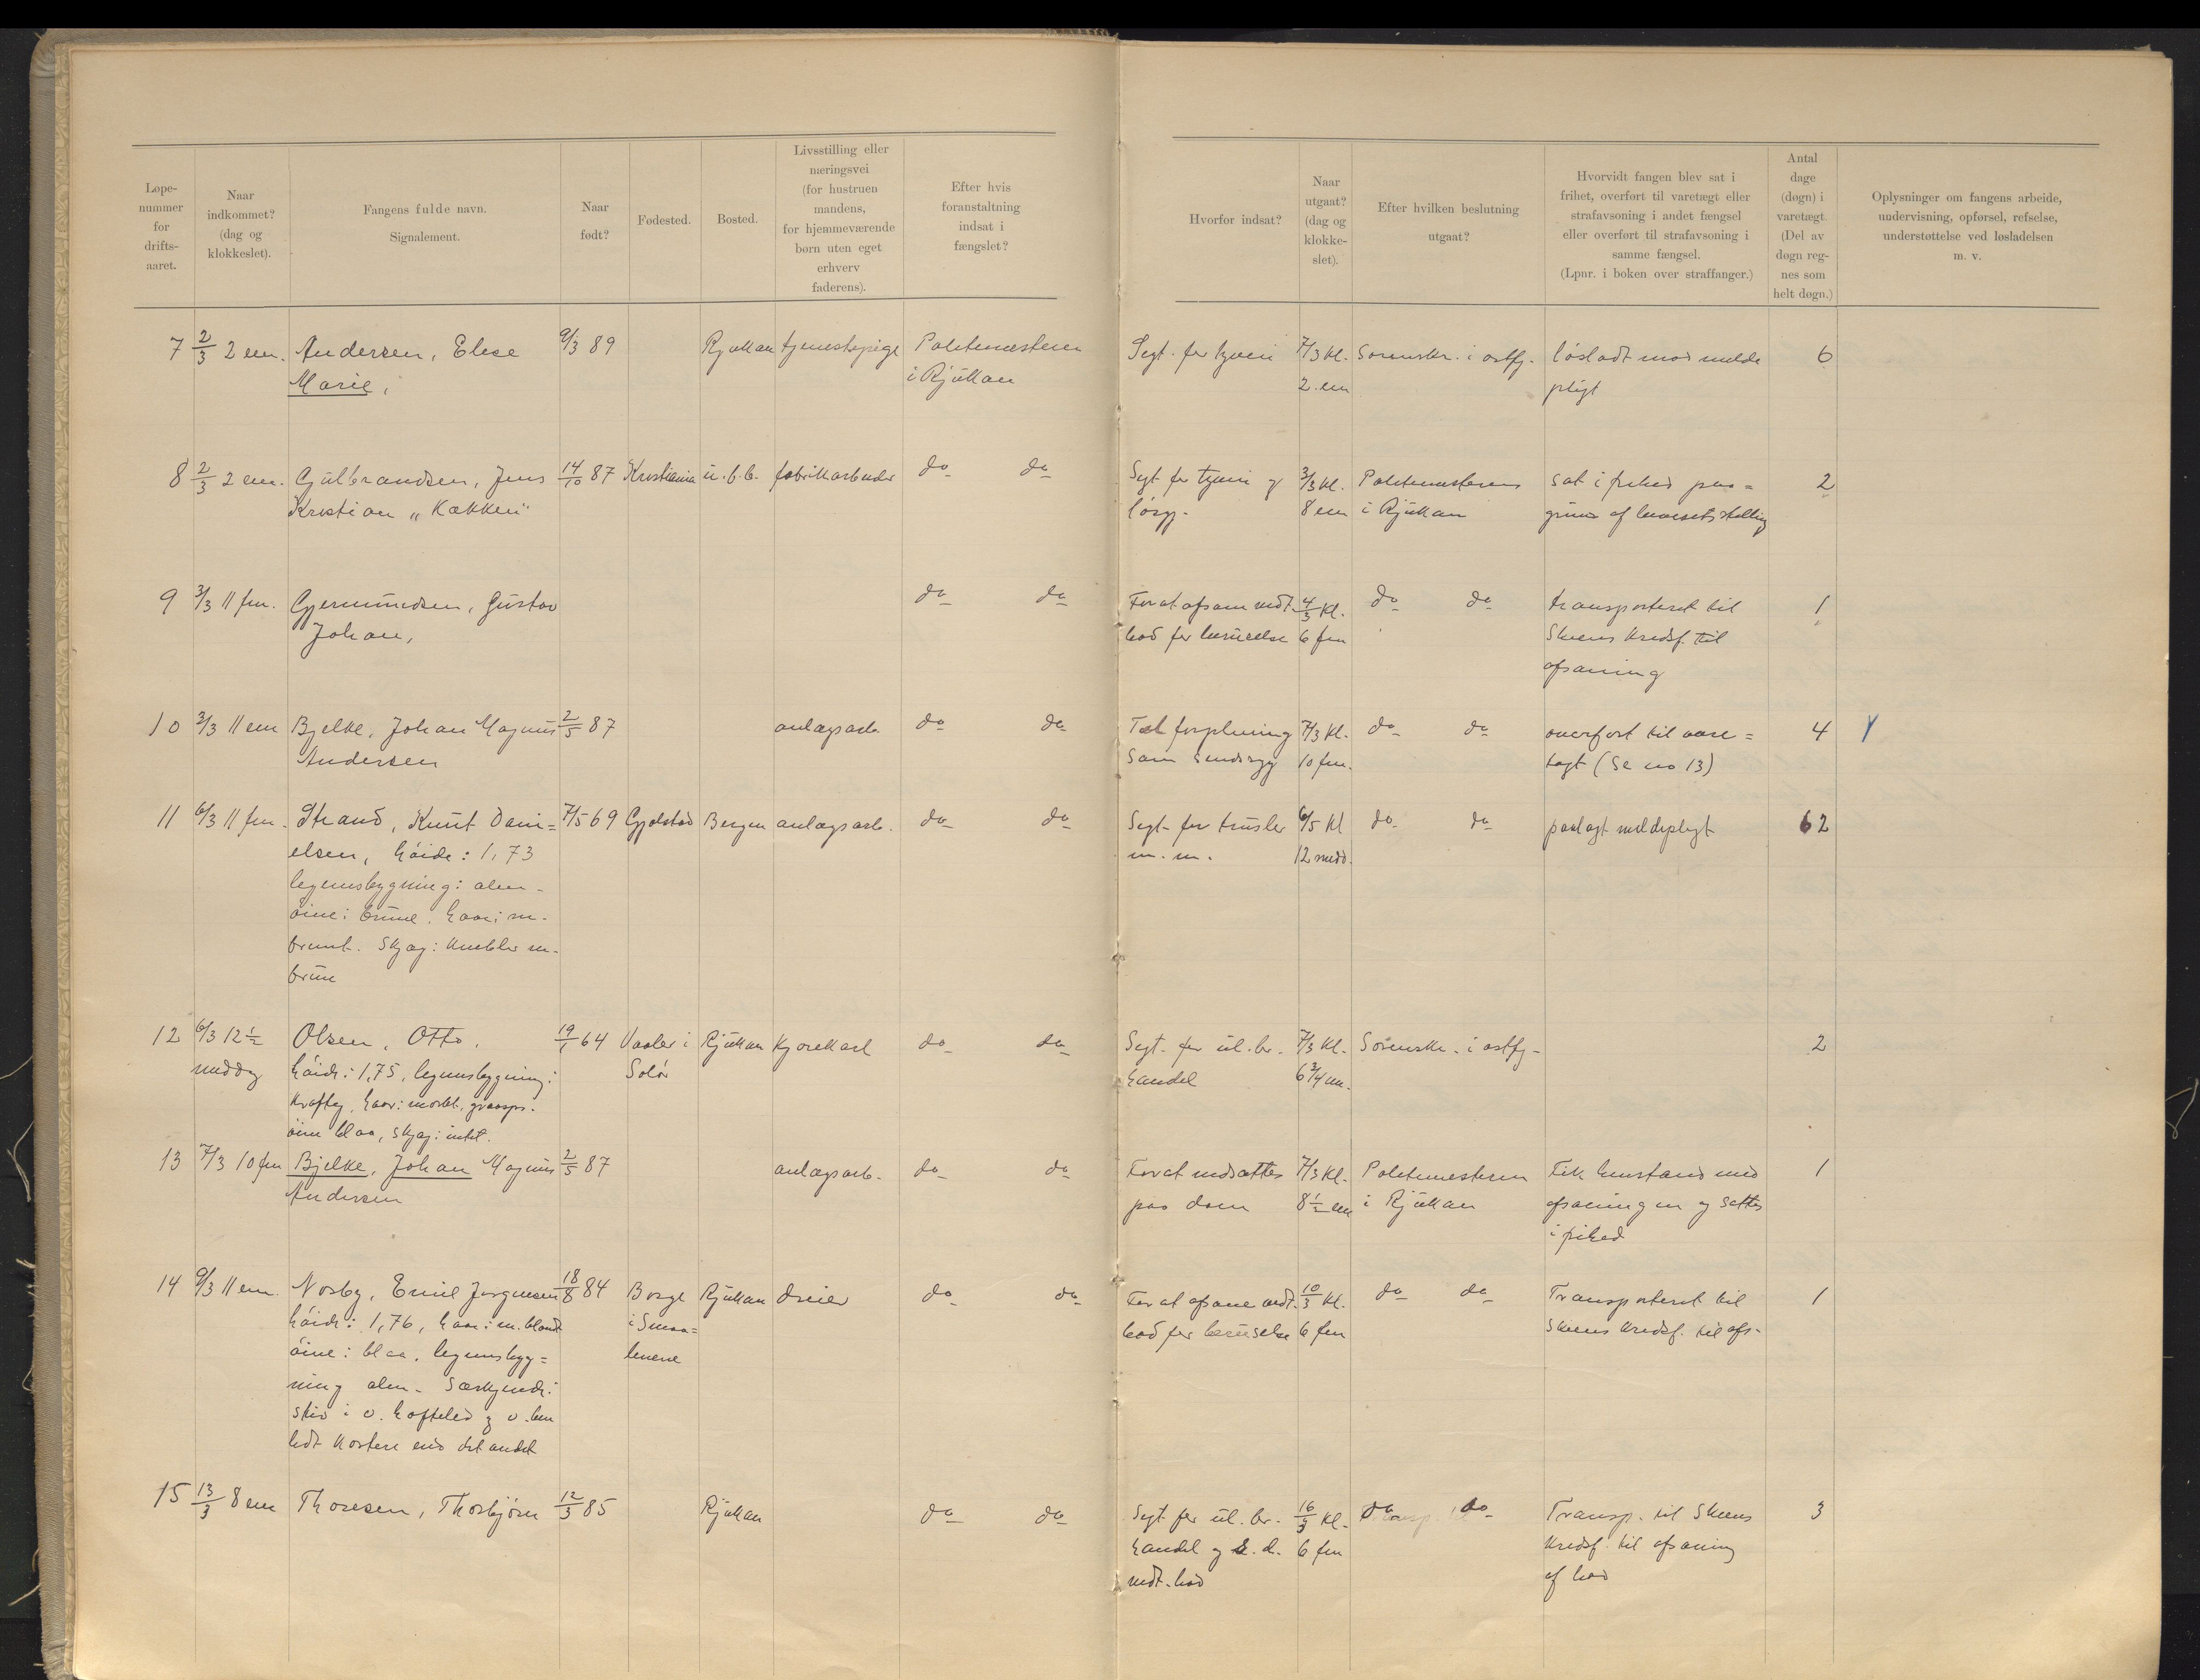 Løpe-
nummer
for
drifts-
aaret.
Naar
indkommet?
(dag og
klokkeslet).
Fangens fulde navn.
Signalement.
Naar
født?
Fødested.
Bosted.
Livsstilling eller
næringsvei
(for hustruen
mandens,
for hjemmeværende
børn uten eget
erhverv
faderens).
Efter hvis
foranstaltning
indsat i
fængslet?
Hvorfor indsat?
Naar
utgaat?
(dag og
klokke-
slet).
Efter hvilken beslutning
utgaat?
Hvorvidt fangen blev sat i
frihet, overført til varetægt eller
strafavsoning i andet fængsel
eller overført til strafavsoning i
samme fængsel.
(Lpnr. i boken over straffanger.)
Antal
dage
(døgn) i
varetægt.
(Del av
døgn reg-
nes som
helt døgn.)
Oplysninger om fangens arbeide,
undervisning, opførsel, refselse,
understøttelse ved løsladelsen
m. v.
7 2/3 2 em. Andersen, Elise 9/3 89 Rjukan tjenestepige Politimesteren Sigt. for tyveri 7/3 kl. Sorenskr. i østfj. løsladt mod melde 6
Marie, i Rjukan 2 em pligt
8 2/3 2 em. Gulbrandsen, Jens 14/10 87 Kristiania u. f. b. fabrikarbeider do do Sigt for tyveri og 3/3 kl. Politimesteren sat i frihed paa= 2
Kristian „Kakken" løsg. 8 em i Rjukan grund af bevisets stilling
9 3/3 11 fm. Gjermundsen, Gustav do do For at afsone vedt. 4/3 kl. do do transporteret til 1
Johan, bod for beruselse 6 fm Skiens kredsf. til
afsoning
10 3/3 11 em Bjelke, Johan Magnus 2/5 87 anlægsarb. do do Til forpleining 7/3 kl. do do overført til vare= 4
Andersen som sindsyg 10 fm. tægt (se no 13)
11 6/3 11 fm. Strand, Knut Dani= 7/5 69 Gjølstad Bergen anlægsarb. do do Sigt. for trusler 6/5 kl do do paalagt meldepligt 62
elsen, høide: 1,73 m. m. 12 midd.
legemsbygning: alm.
øine: brune. haar: m.
brunt. Skjæg: knebler m.
brun
12 6/3 12 1/2 Olsen, Otto, 19/1 64 Vaaler i Rjukan kjørekarl do do Sigt. for ul. br. 7/3 kl. Sorenskr. i østfj. 2
middag høide: 1,75, legemsbygning: Solør handel 6 3/4 em.
kraftig, haar: mørkt, graaspr.
øine blaa, skjæg: intet.
13 7/3 10 fm Bjelke, Johan Magnus 2/5 87 anlægsarb. do do For at indsættes 7/3 kl. Politimesteren Fik henstand med 1
Andersen paa dom 8 1/2 em i Rjukan afsoningen og sattes
i frihed
14 9/3 11 em. Norby, Emil Jørgensen 18/8 84 Borge Rjukan dreier do do For at afsone vedt. 10/3 kl. do do Transporteret til 1
høide: 1,76, haar: m. blondt i Smaa= bod for beruselse 6 fm Skiens kredsf. til afs.
øine: blaa. legemsbyg= lenene
ning alm. Særkjende:
stiv i v. hofteled og v. ben
lidt kortere end det andet
15 13/3 8 em Thoresen, Thorbjørn 12/3 85 Rjukan do do Sigt for ul. br. 16/3 kl. do do Transp. til Skiens 3
handel og d. 6 fm kredsf. til afsoning
vedt. bod af bod